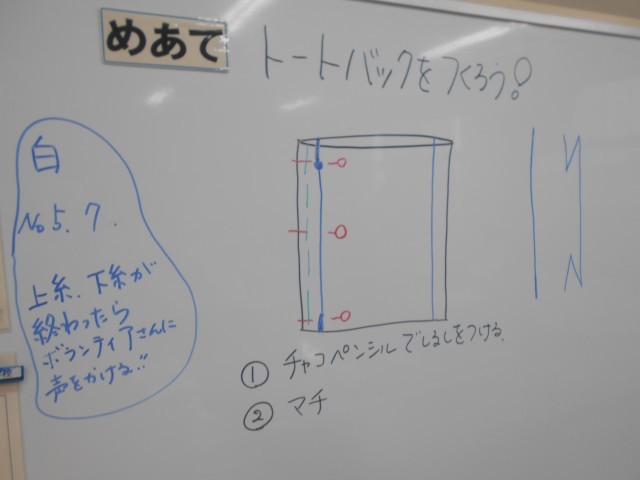 めあて トートバックをつくろう!
白
No 5. 7.
上糸、下糸が
終わったら
ボランティアさんに
声をかける!!
① チャコペンシルでしるしをつける。
② マチ